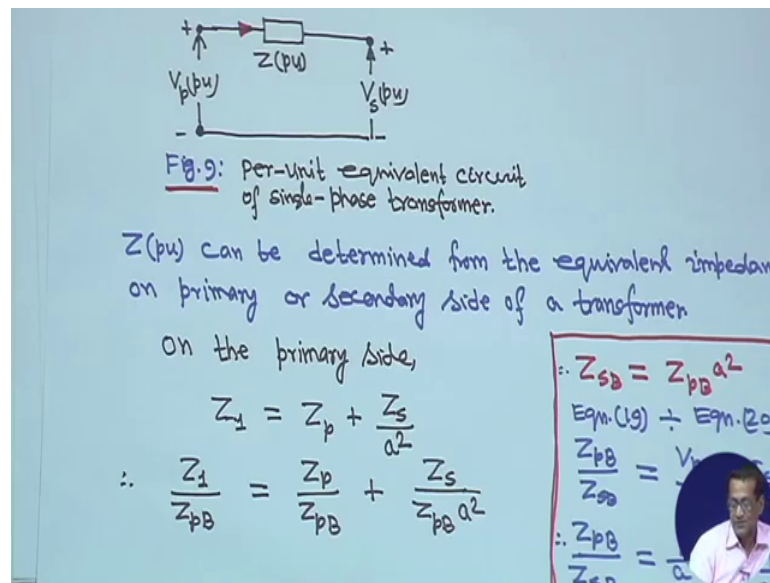 +
+
Z(pu)
Vp(pu)
Vs(pu)
-
-
Fig.9: Per-unit equivalent circuit
of single-phase transformer.
Z(pu) can be determined from the equivalent
on primary or secondary side of a transformer
On the primary side,
Z₁ = Zp + Zs/a²
∴ Z₁/ZpB = Zp/ZpB + Zs/(ZpB a²)
∴ ZsB = ZpB a²
Eqn.(19) ÷ Eqn.(20
ZpB/ZsB =
∴ ZpB/ZsB =